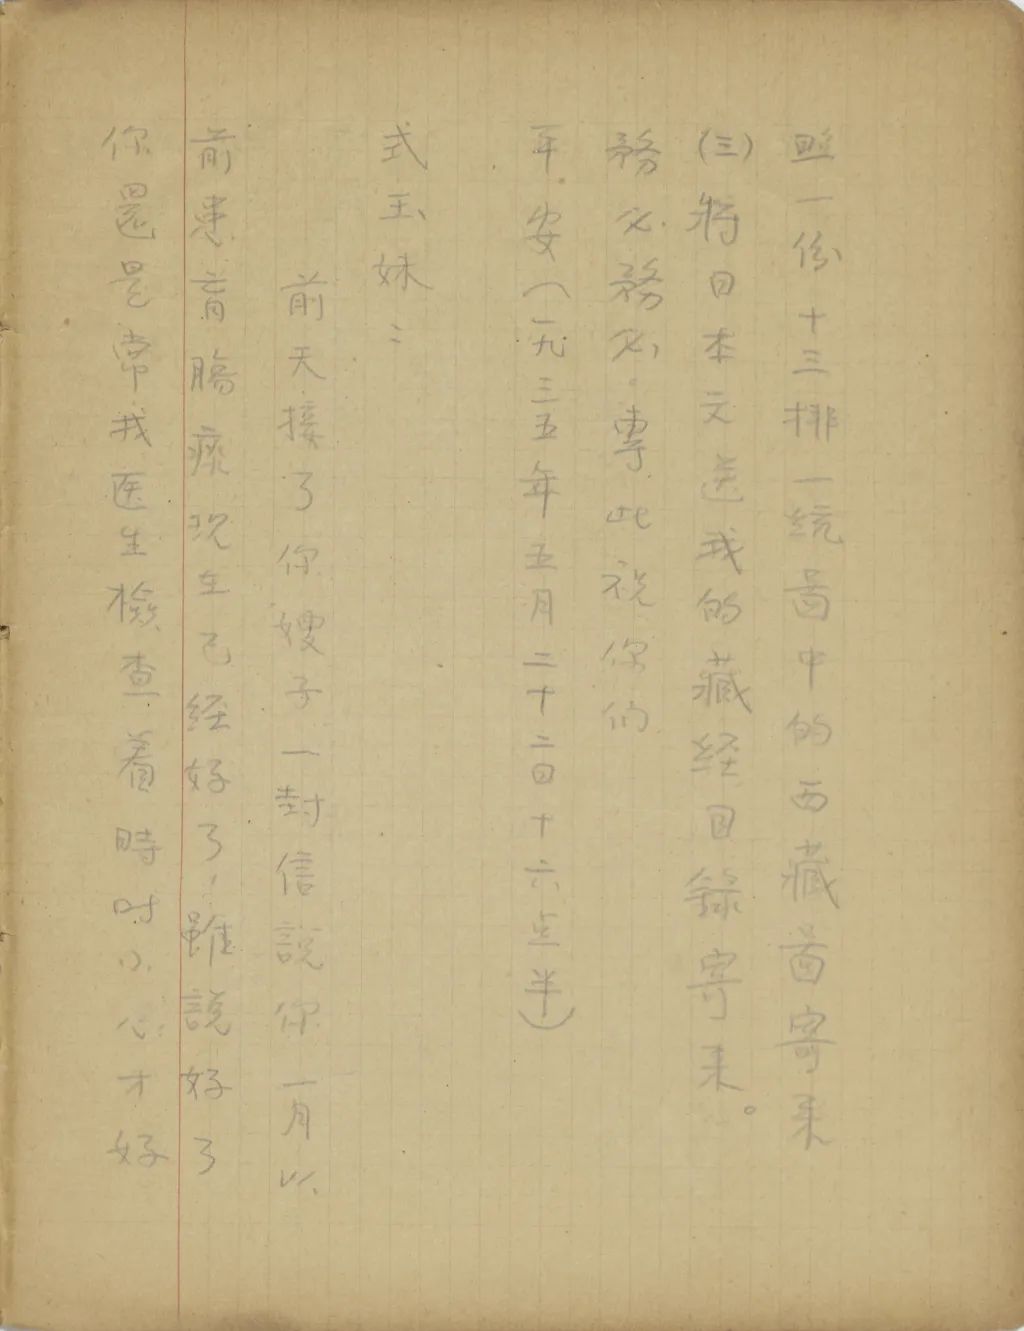 照一份十三排一統啚中的西藏啚寄来
(三)将日本文送我的藏経目録寄来。
務必務必。專此祝你们
平安(一九三五年五月二十二日十六点半)
式玉妹:
前天接了你嫂子一封信説你一月以
前患盲腸瘀现在已経好了,雖説好了
你還是常找医生檢查着時时小心才好